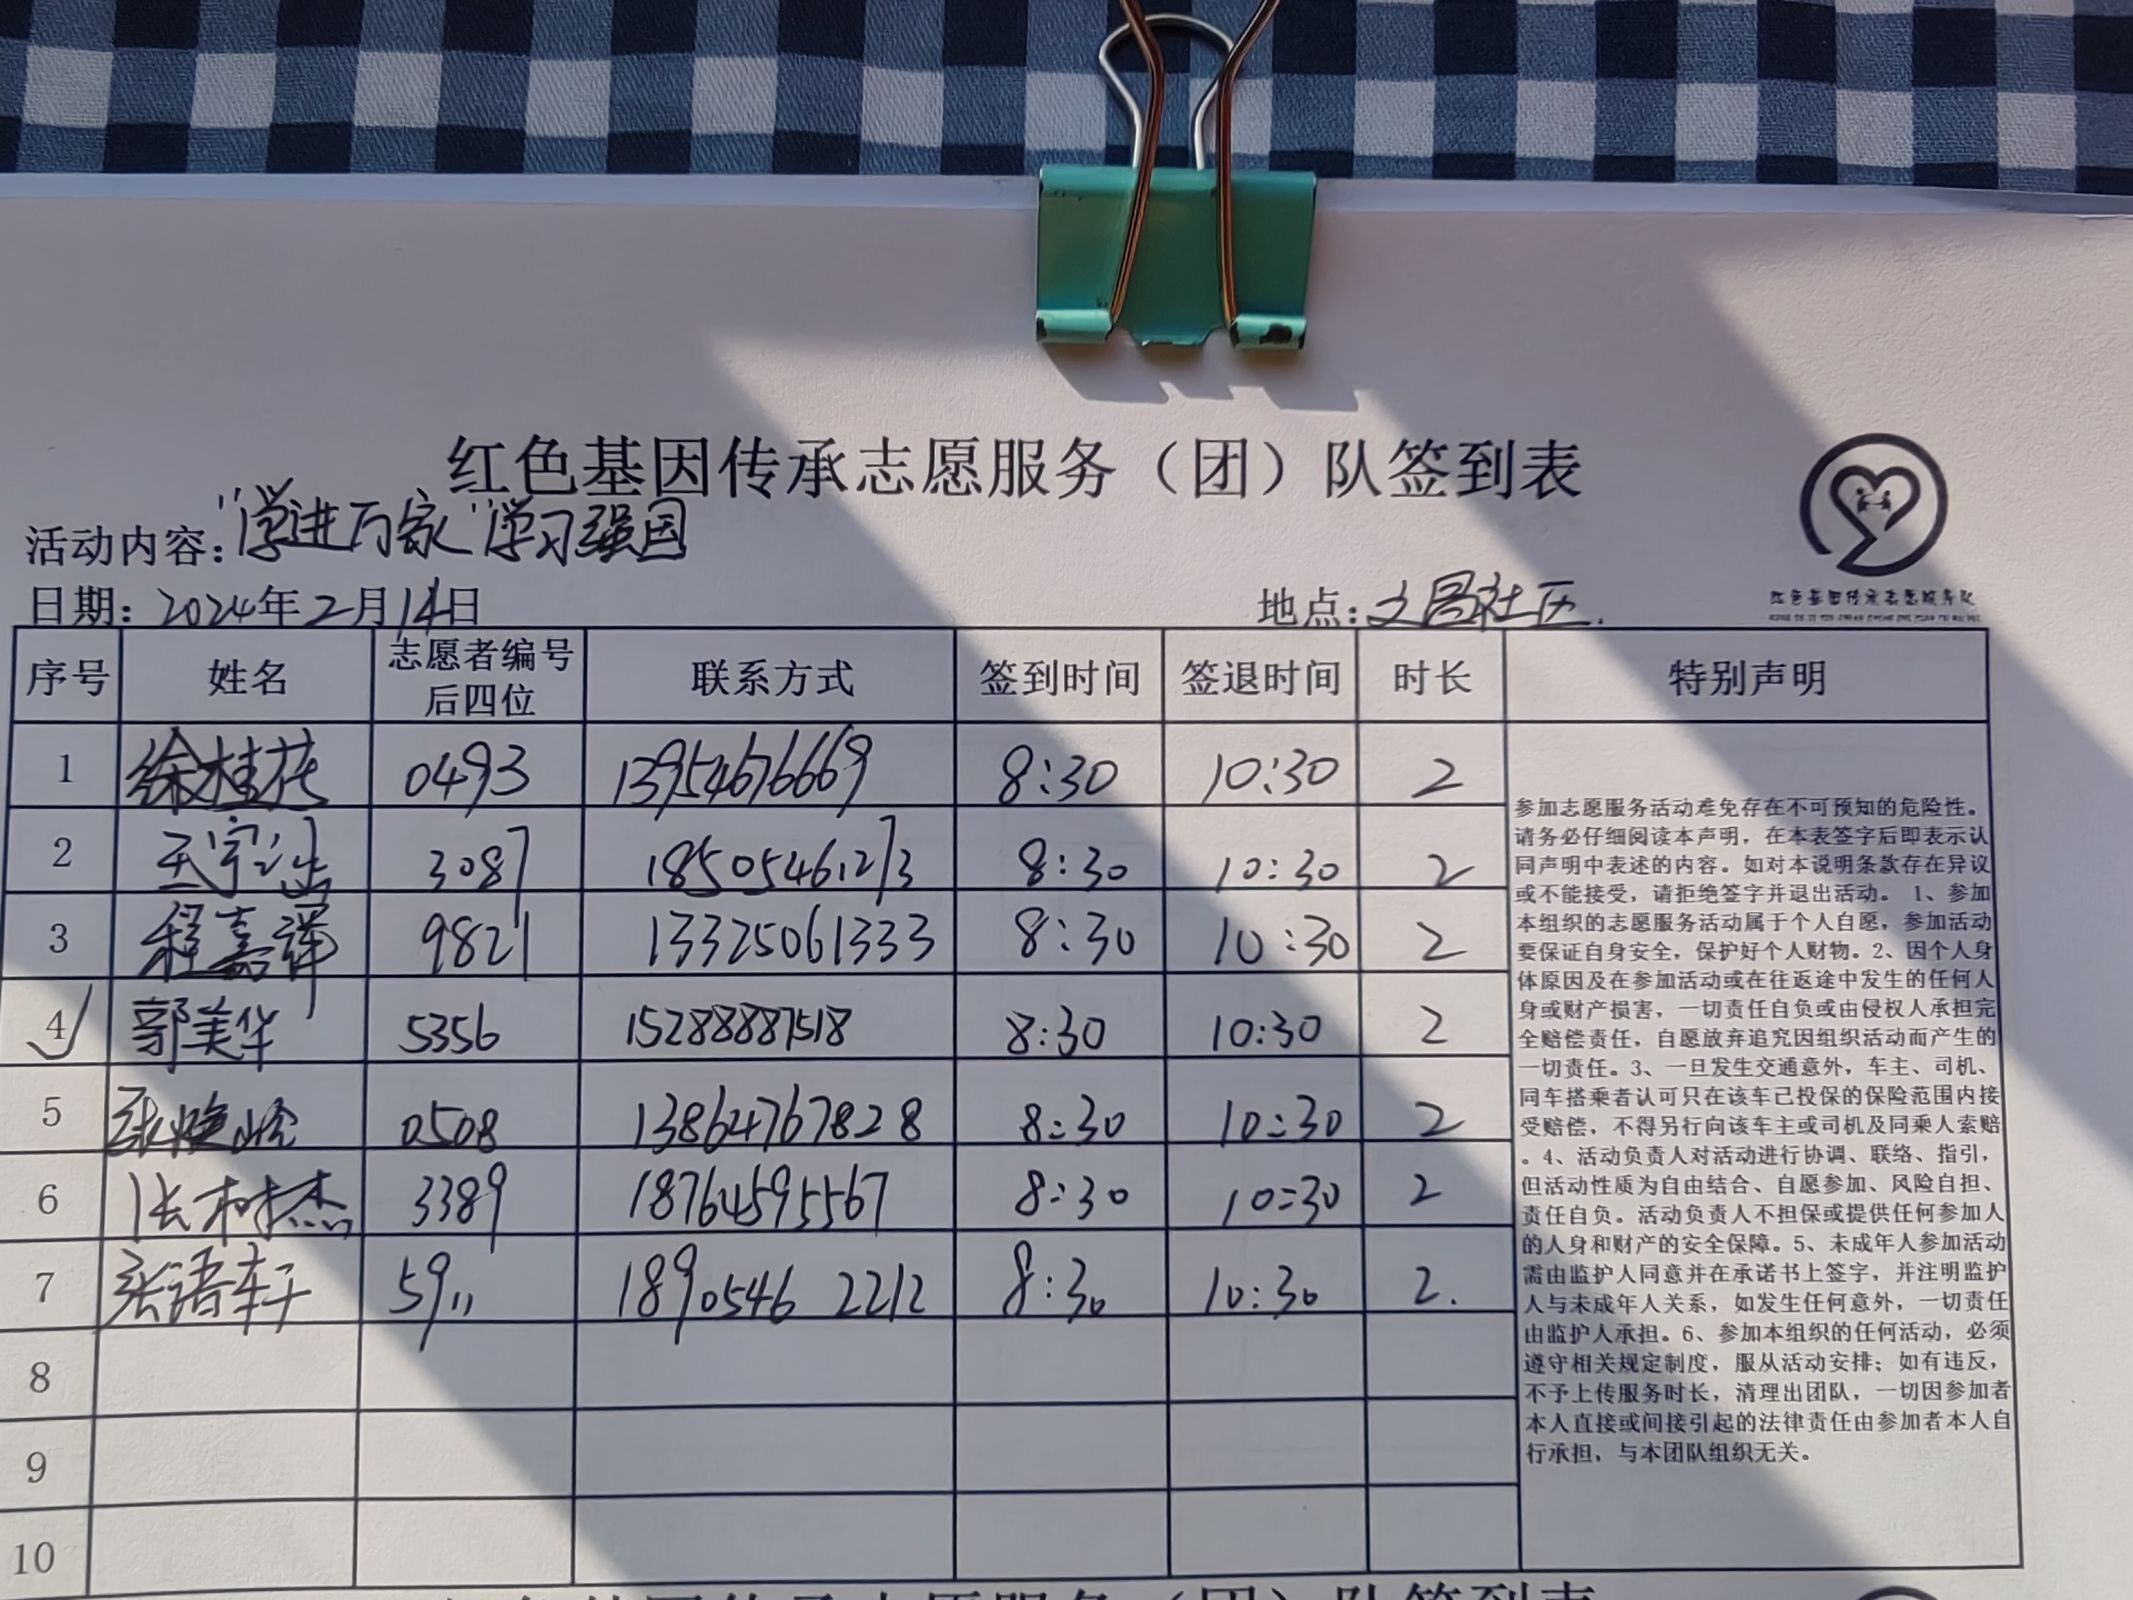 红色基因传承志愿服务（团）队签到表
活动内容："学进万家"学习强国
日期：2024年2月14日 地点：文昌社区.
序号 姓名 志愿者编号后四位 联系方式 签到时间 签退时间 时长 特别声明
1 徐桂花 0493 13954676669 8:30 10:30 2
2 王宇 3087 18505461273 8:30 10:30 2
3 程嘉译 9821 13325061333 8:30 10:30 2
4 郭美华 5356 15288887518 8:30 10:30 2
5 0508 13864767828 8:30 10:30 2
6 张树杰 3389 18764595567 8:30 10:30 2
7 张语轩 5911 18905462212 8:30 10:30 2.
8
9
10
参加志愿服务活动难免存在不可预知的危险性。
请务必仔细阅读本声明，在本表签字后即表示认
同声明中表述的内容。如对本说明条款存在异议
或不能接受，请拒绝签字并退出活动。 1、参加
本组织的志愿服务活动属于个人自愿，参加活动
要保证自身安全，保护好个人财物。2、因个人身
体原因及在参加活动或在往返途中发生的任何人
身或财产损害，一切责任自负或由侵权人承担完
全赔偿责任，自愿放弃追究因组织活动而产生的
一切责任。3、一旦发生交通意外，车主、司机、
同车搭乘者认可只在该车已投保的保险范围内接
受赔偿，不得另行向该车主或司机及同乘人索赔
。4、活动负责人对活动进行协调、联络、指引，
但活动性质为自由结合、自愿参加、风险自担、
责任自负。活动负责人不担保或提供任何参加人
的人身和财产的安全保障。5、未成年人参加活动
需由监护人同意并在承诺书上签字，并注明监护
人与未成年人关系，如发生任何意外，一切责任
由监护人承担。6、参加本组织的任何活动，必须
遵守相关规定制度，服从活动安排；如有违反，
不予上传服务时长，清理出团队，一切因参加者
本人直接或间接引起的法律责任由参加者本人自
行承担，与本团队组织无关。
红色基因传承志愿服务（团）队签到表